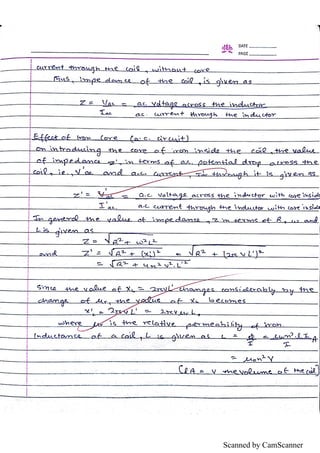 DATE
PAGE
current through the coil, without core
Thus, impedance of the coil, is given as
Z = Vac = a.c. voltage across the inductor
Iac a.c. current through the inductor
Effect of iron Core (a.c. circuit)
On introducing the core of iron inside the coil, the value
of impedance z', in terms of ac potential drop across the
coil, i.e., V'ac and a.c. current, I'ac through it is given as
Z' = V'ac = a.c voltage across the inductor with core inside
I'ac a.c current through the inductor with core inside
In general the value of impedance, z in terms of R, ω and
L is given as
Z = √R² + ω²L²
and Z' = √R² + (XL')² = √R² + (2πνL')²
= √R² + 4π²ν²L'²
Since the value of XL = 2πνL' changes considerably by the
change of μr, the value of XL becomes
X'L = 2πνL' = 2πνμrL,
where μr is the relative permeability of iron
Inductance of a coil, L is given as L = Φ = μ0n²lIA
I I
= μ0n²V
(lA = V the volume of the coil)
Scanned by CamScanner